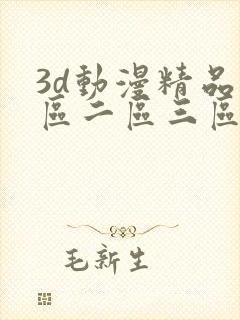 3d動漫精品
區二區三區
毛新生